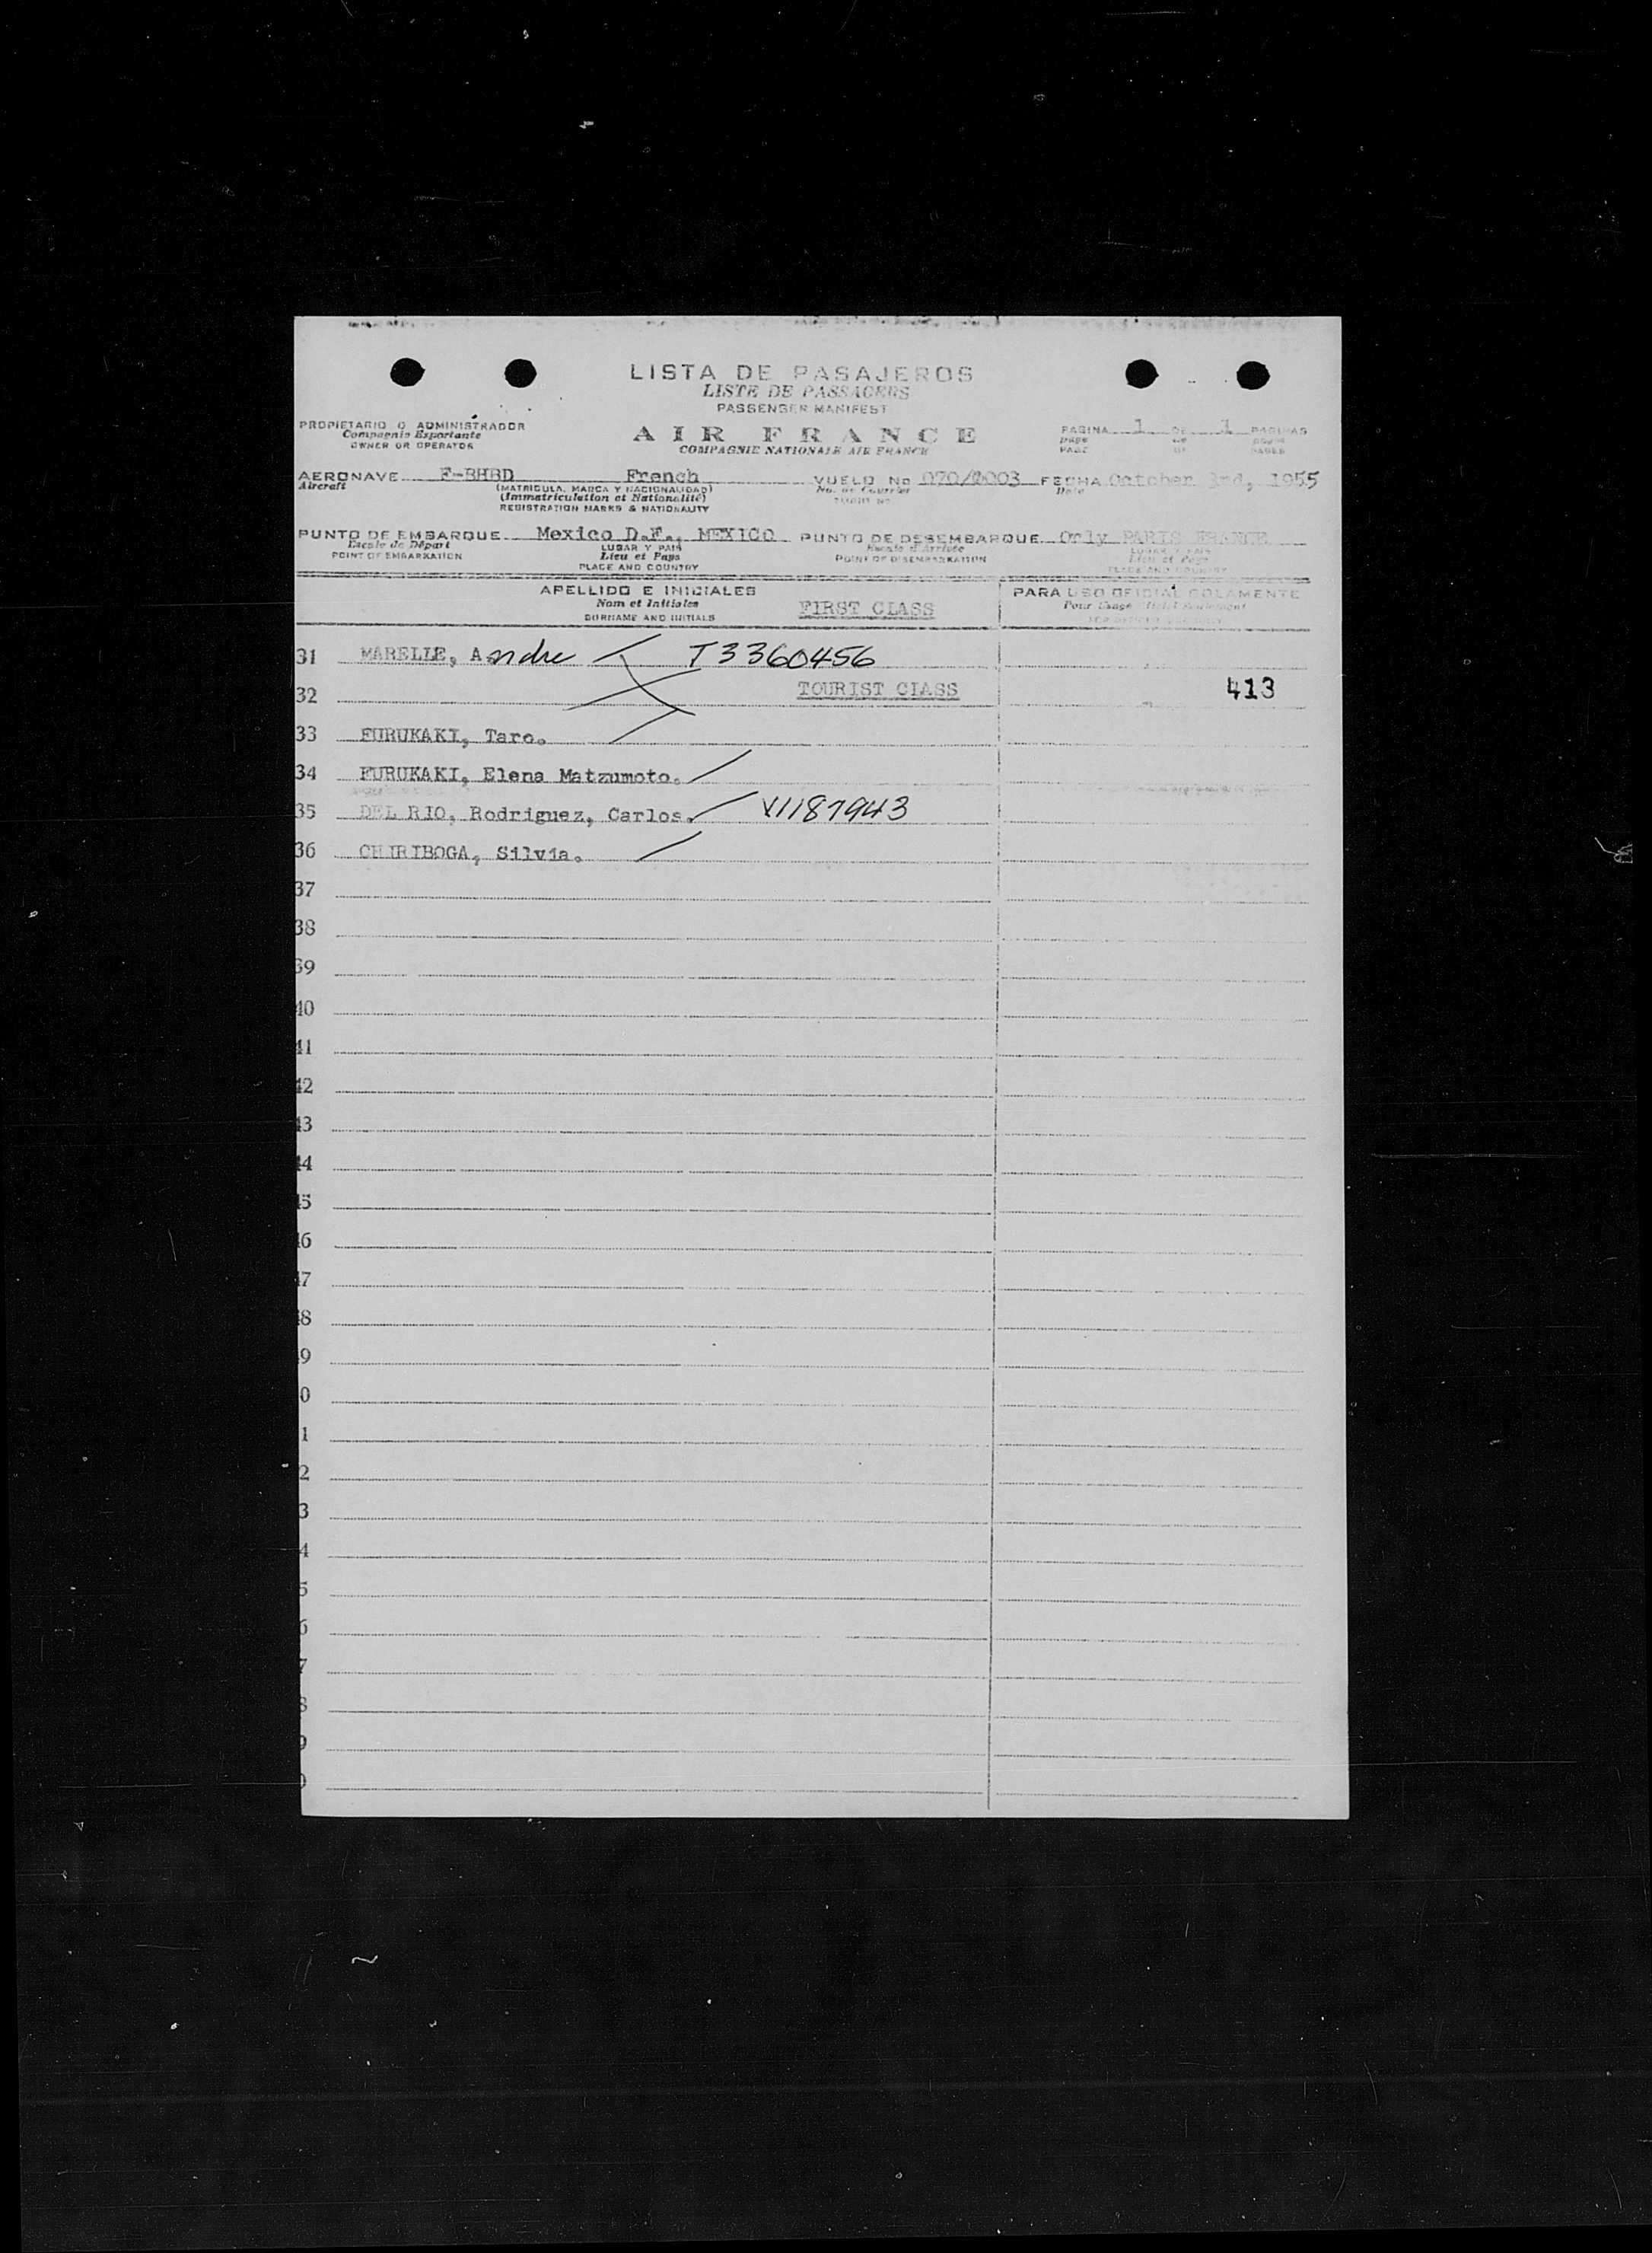 LISTA DE PASAJEROS
LISTE DE PASSAGERS
PASSENGER MANIFEST
PROPIETARIO O ADMINISTRADOR
Compagnie Exportante
OWNER OR OPERATOR
AIR FRANCE
COMPAGNIE NATIONALE AIR FRANCE
PAGINA 1 DE 1 PAGINAS
page de pages
PAGE OF PAGES
AERONAVE F-BHBD French VUELO No 070/2003 FECHA October 3rd, 1955
Aircraft (MATRICULA, MARCA Y NACIONALIDAD) No. de Courrier Date
(Immatriculation et Nationalité) FLIGHT No
REGISTRATION MARKS & NATIONALITY
PUNTO DE EMBARQUE Mexico D.F., MEXICO PUNTO DE DESEMBARQUE Orly PARIS FRANCE
Escale de Départ LUGAR Y PAIS Escale d'Arrivée LUGAR Y PAIS
POINT OF EMBARKATION Lieu et Pays POINT OF DISEMBARKATION Lieu et Pays
PLACE AND COUNTRY PLACE AND COUNTRY
APELLIDO E INICIALES PARA USO OFICIAL SOLAMENTE
Nom et Initiales FIRST CLASS Pour Usage Officiel Seulement
SURNAME AND INITIALS
31 MARELLE, Andre T3360456
32 TOURIST CLASS 413
33 FURUKAKI, Taro.
34 FURUKAKI, Elena Matzumoto.
35 DEL RIO, Rodriguez, Carlos. V1187943
36 CHIRIBOGA, Silvia.
37
38
39
40
41
42
43
44
45
46
47
48
49
0
1
2
3
4
5
6
7
8
9
0